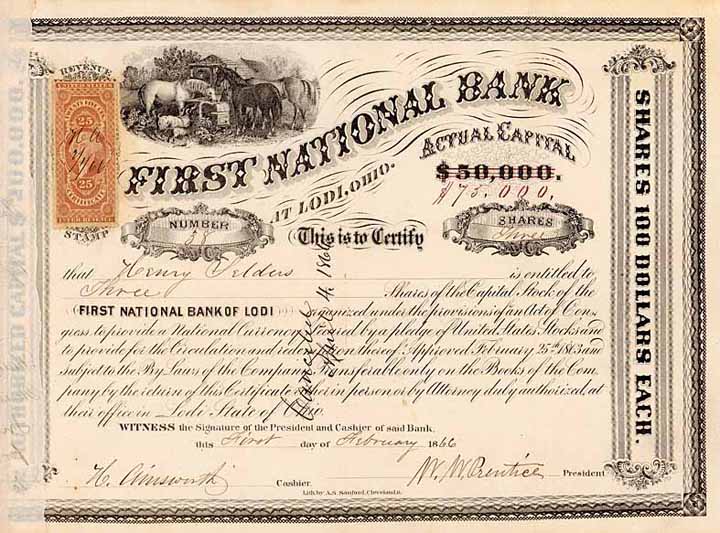 REVENUE
UNITED STATES
25
25
CERTIFICATE
INTER. REVENUE
STAMP
FIRST NATIONAL BANK
AT LODI, OHIO.
ACTUAL CAPITAL
$50,000.
$75.000.
NUMBER
SHARES
Three
This is to Certify
that Henry Selders is entitled to
Three Shares of the Capital Stock of the
FIRST NATIONAL BANK OF LODI organized under the provisions of an Act of Con-
gress to provide a National Currency secured by a pledge of United States Stocks and
to provide for the Circulation and redemption thereof Approved February 25th 1863 and
subject to the By Laws of the Company Transferable only on the Books of the Com-
pany by the return of this Certificate either in person or by Attorney duly authorized, at
their office in Lodi State of Ohio.
Cancelled
WITNESS the Signature of the President and Cashier of said Bank,
this First day of February 1866
H. Ainsworth Cashier.
W. W. Prentice President
Lith. by A.S. Sanford, Cleveland, O.
SHARES 100 DOLLARS EACH.
AUTHORIZED CAPITAL $200,000.